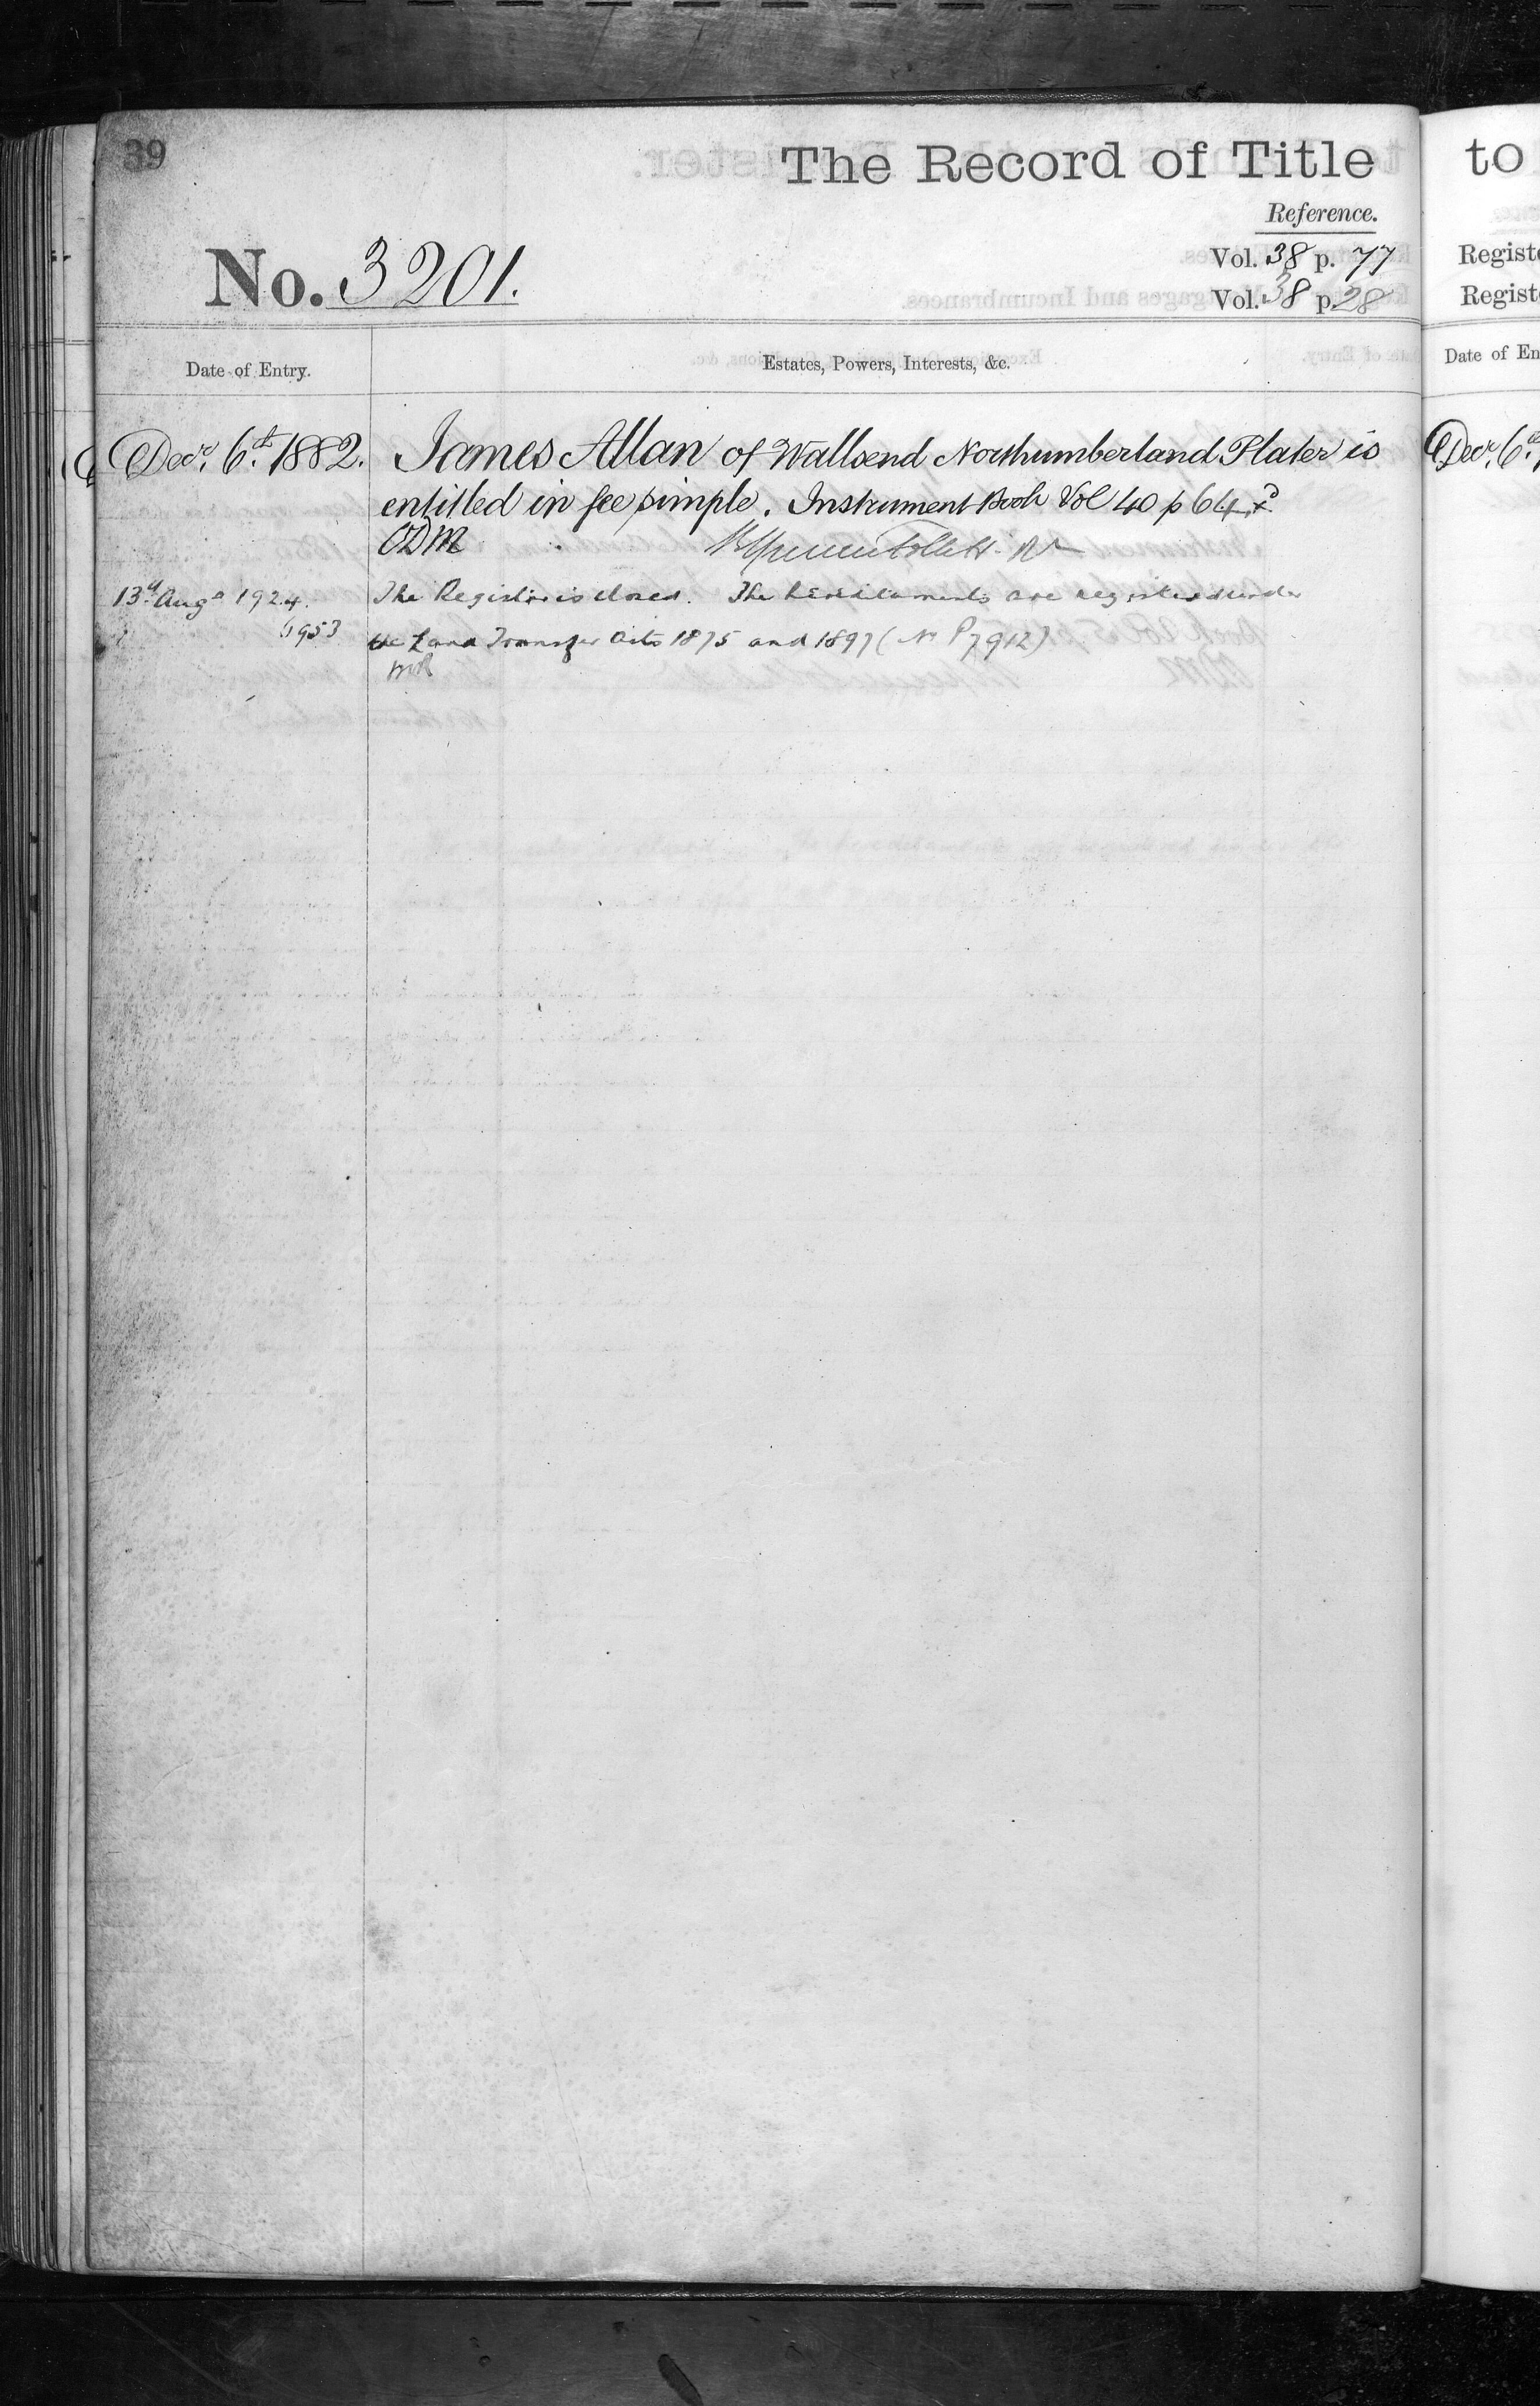 39
The Record of Title
Reference.
No. 3201.
Vol. 38 p. 77
Vol. 38 p 28
Date of Entry.
Estates, Powers, Interests, &c.
Decr. 6th. 1882.
James Allan of Wallsend Northumberland Plater is
entitled in fee simple. Instrument Book Vol 40 p 64
CDM
13th Augt 1924.
The Register is closed. The hereditaments are registered under
6953
the Land Transfer Acts 1875 and 1897 (No P7912)
MR
to
Registe
Registe
Date of En
Decr. 6th